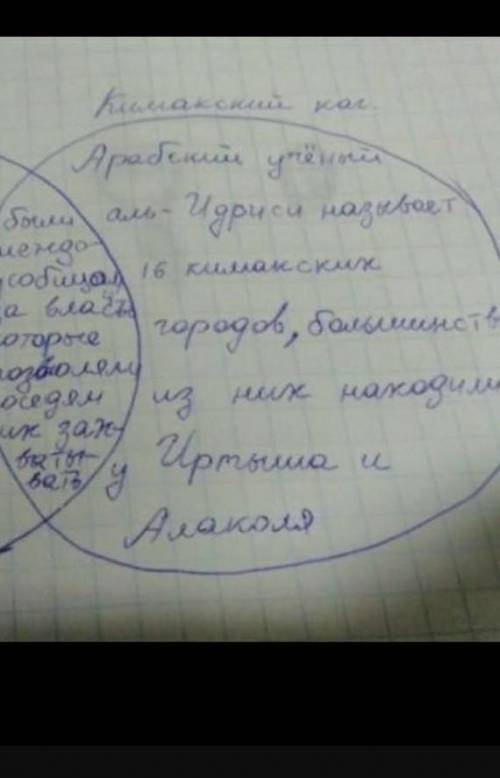 Кимакский каг.
Арабский учёный
аль-Идриси называет
16 кимакских
городов, большинств
из них находили
у Иртыша и
Алаколя
были
междо-
усобицы
за власть
которые
позволяли
оседям
их зах-
ваты-
вать